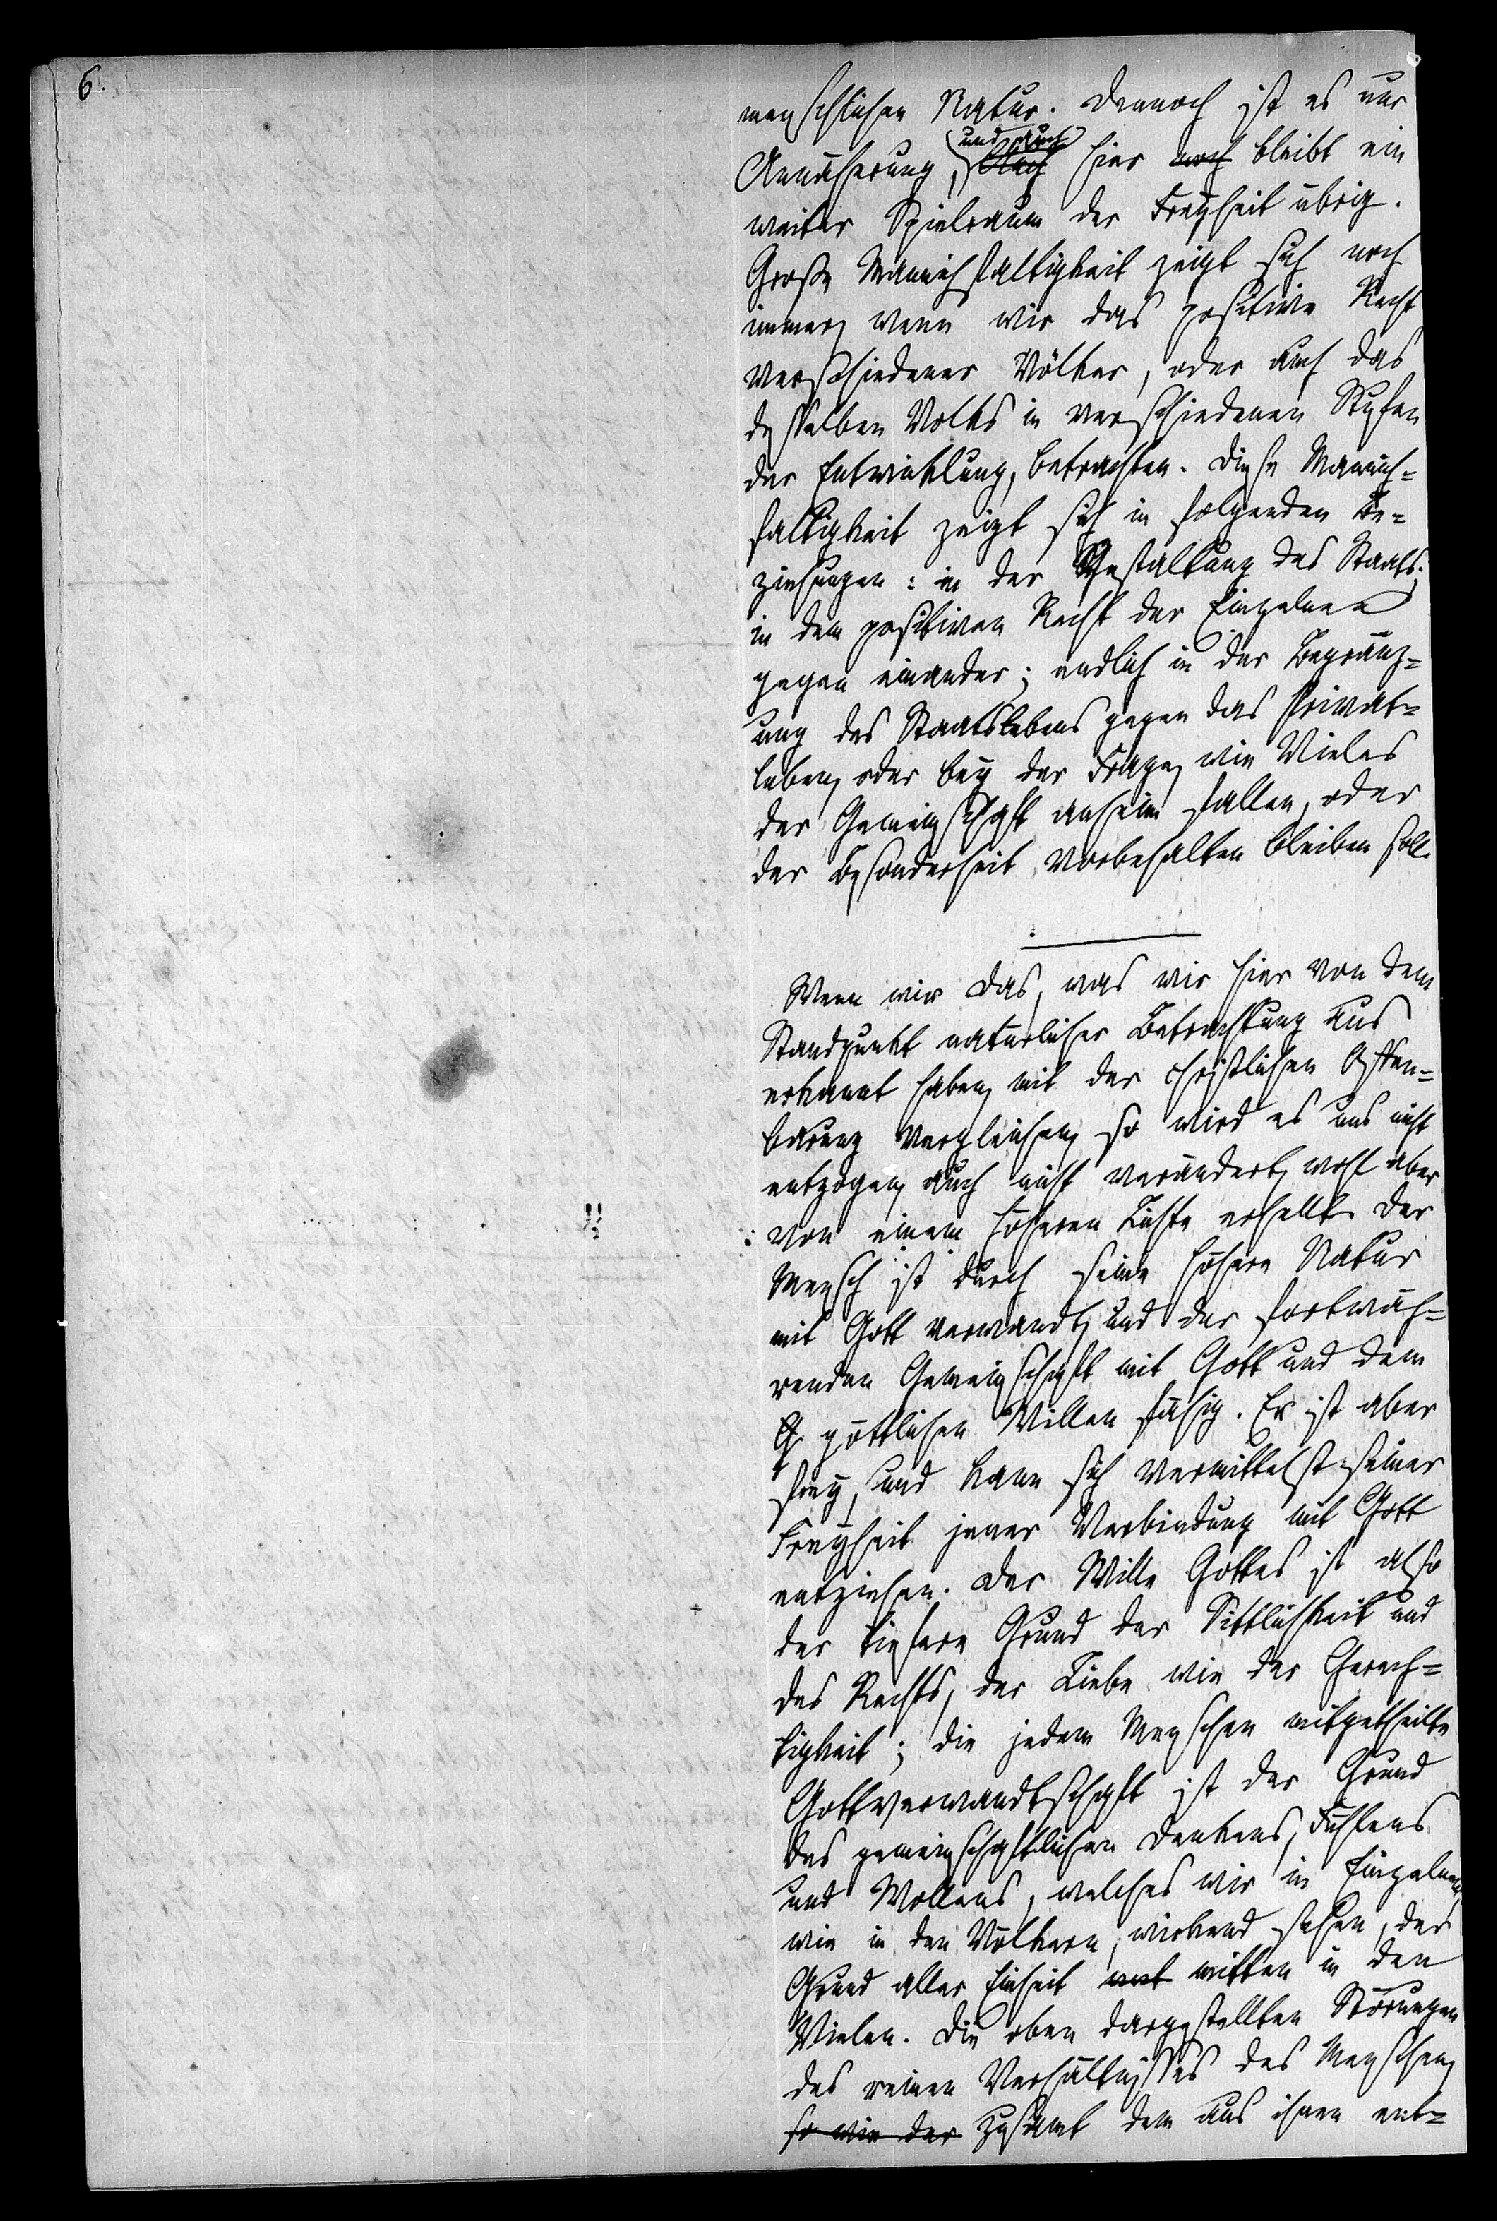 6.
menschlichen Natur. Dennoch ist es nur
und auch
Annäherung, Auch hier noch bleibt ein
weiter Spielraum der Freyheit übrig.
Große Manichfaltigkeit zeigt sich noch
immer, wenn wir das positive Recht
verschiedener Völker, oder auch das
desselben Volks in verschiedenen Stufen
der Entwicklung, betrachten. Diese Manich=
faltigkeit zeigt sich in folgenden Be=
ziehungen: in der Gestaltung des Staats;
in dem positiven Recht der Einzelnen
gegen einander; endlich in der Begränz=
ung des Staatslebens gegen das Privat=
leben, oder bey der Frage, wie Vieles
der Gemeinschaft anheim fallen, oder
der Besonderheit vorbehalten bleiben soll.
Wenn wir das, was wir hier von dem
Standpunkt natürlicher Betrachtung aus
erkannt haben, mit der christlichen Offen=
barung vergleichen, so wird es uns nicht
entzogen, auch nicht verändert, wohl aber
von einem höheren Lichte erhellt. Der
Mensch ist durch seine höhere Natur
mit Gott verwandt, und der fortwäh=
renden Gemeinschaft mit Gott und dem
G göttlichen Willen fähig. Er ist aber
frey, und kann sich vermittelst seiner
Freyheit jener Verbindung mit Gott
entziehen. Der Wille Gottes ist also
der tiefere Grund der Sittlichkeit und
des Rechts, der Liebe wie der Gerech=
tigkeit; die jedem Menschen mitgetheilte
Gottverwandtschaft ist der Grund
des gemeinschaftlichen Denkens, Fühlens
und Wollens, welches wir in Einzelnen,
wie in den Völkern, wirkend sehen, der
Grund aller Einheit mitten in den
Vielen. Die oben dargestellten Störungen
des reinen Verhältnisses des Menschen,
so wie der zusamt dem aus ihnen ent=